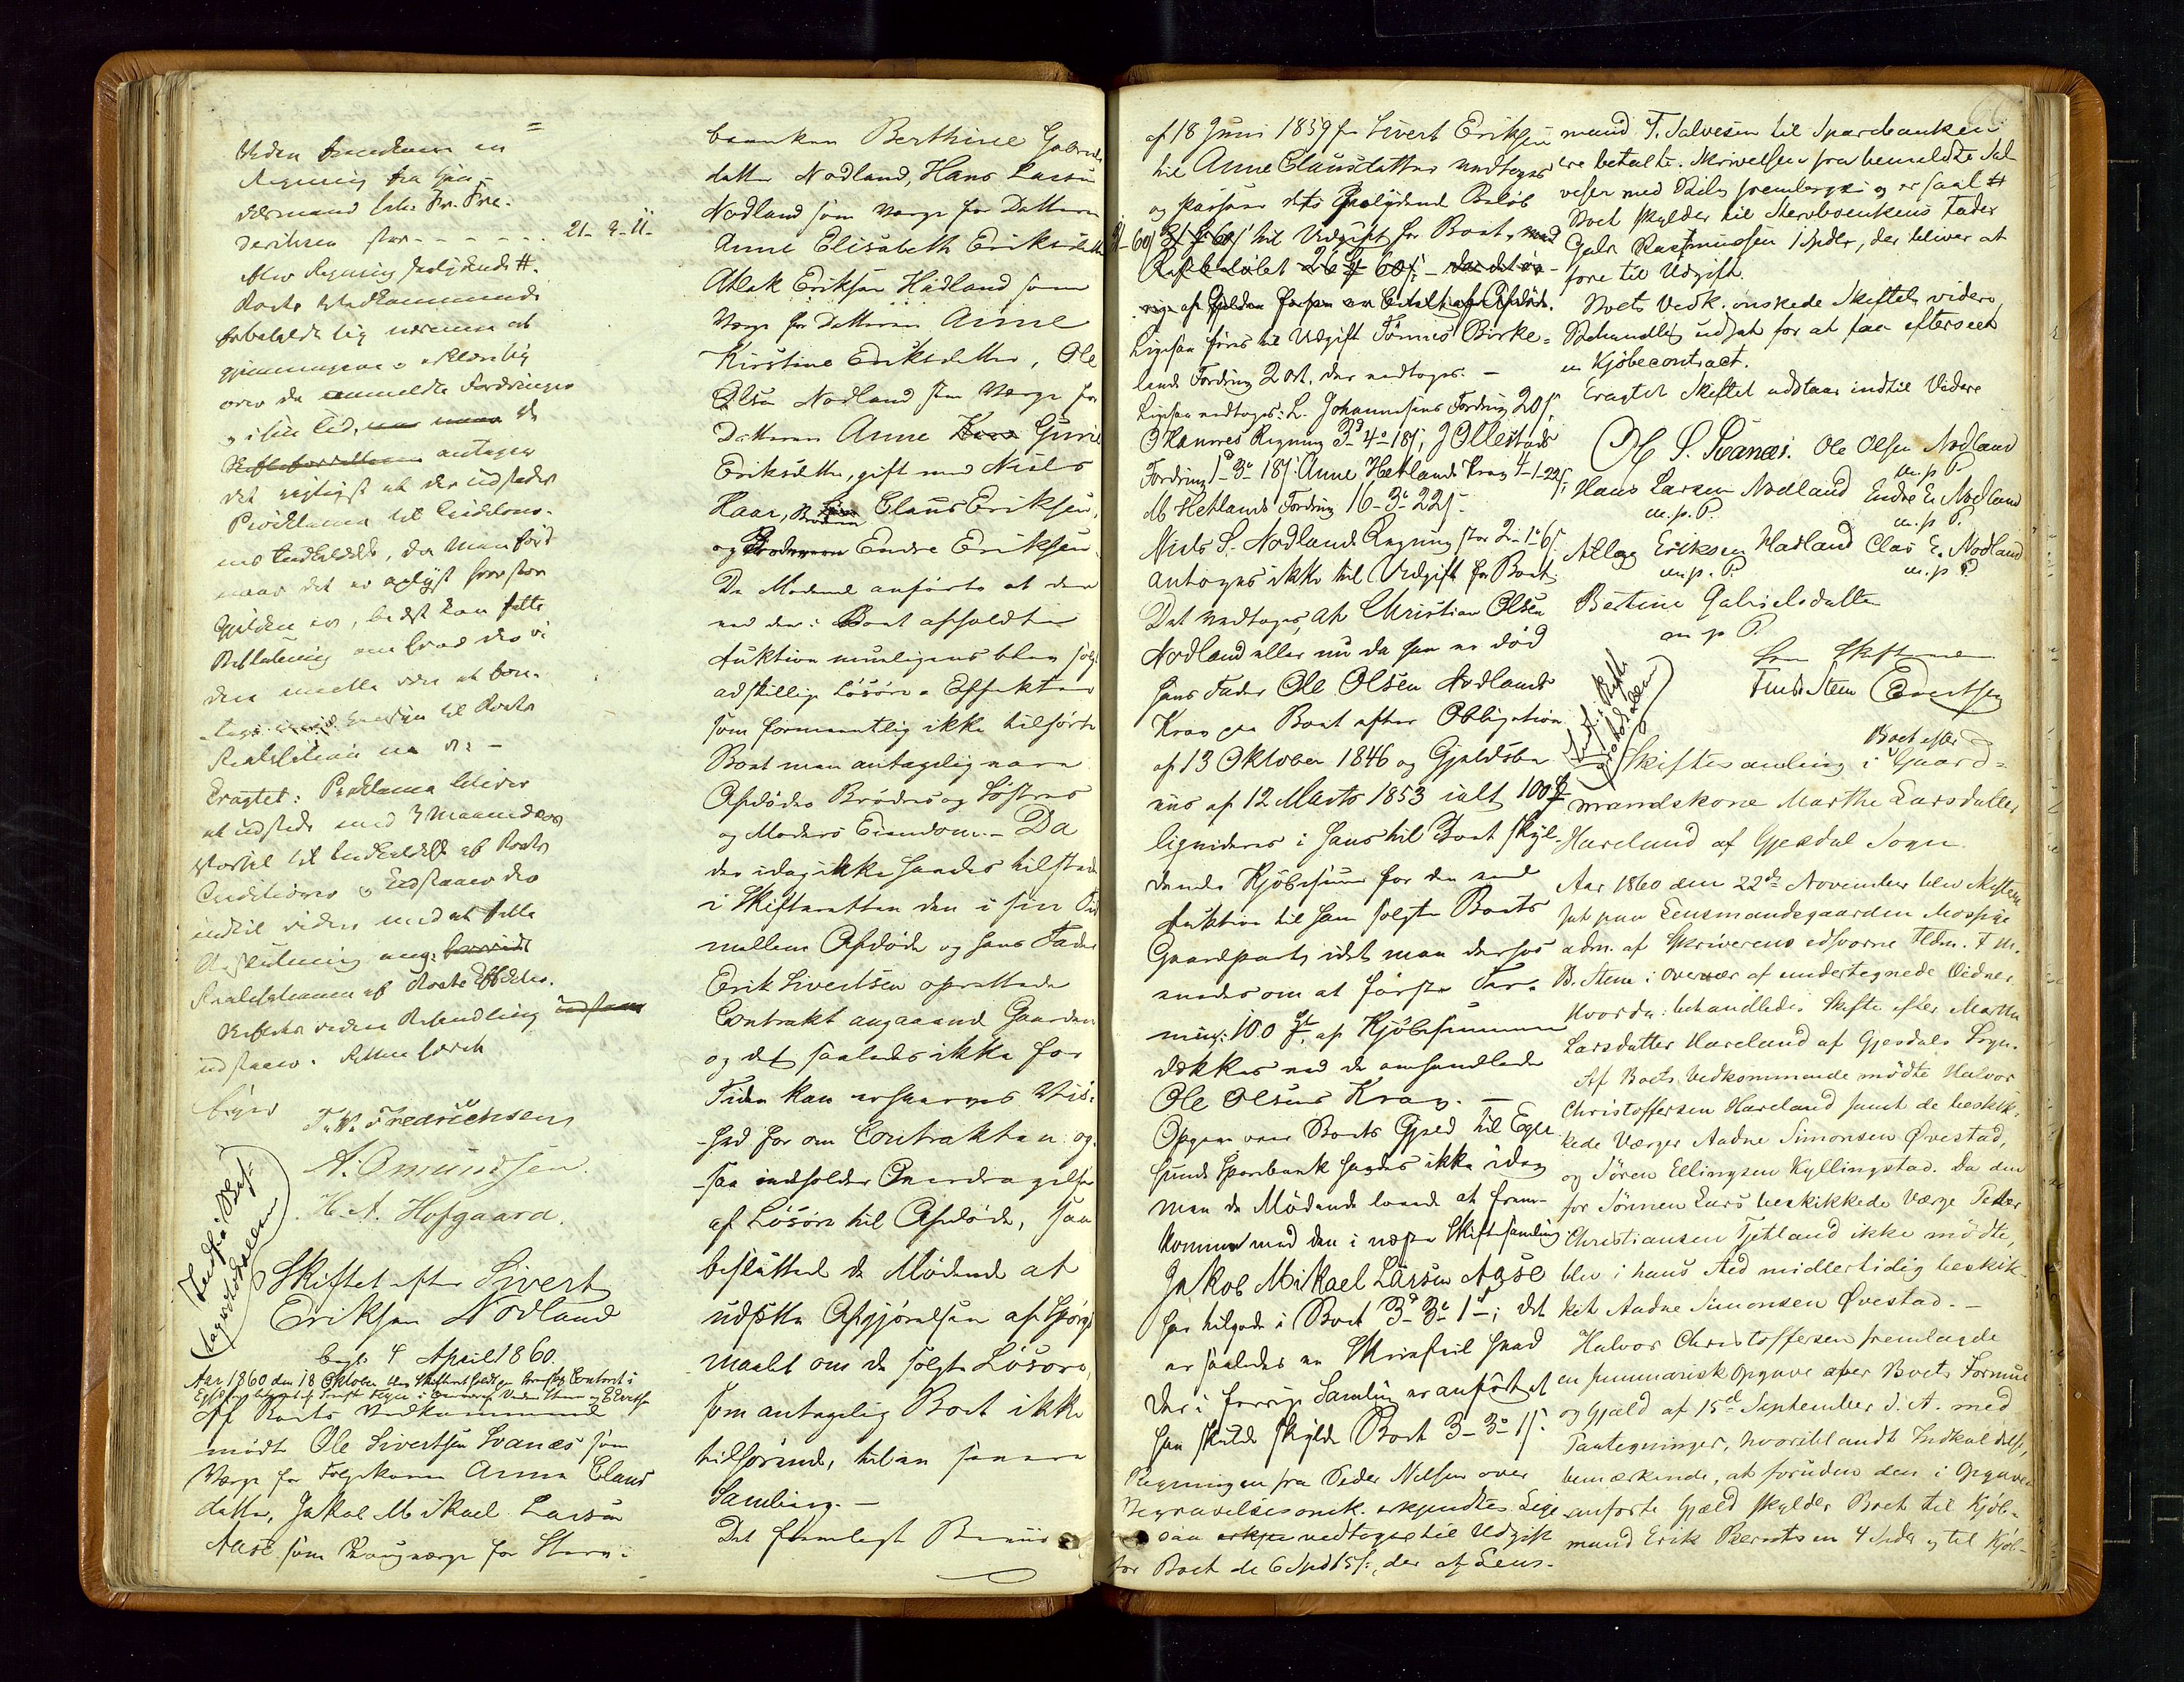 =
Regning fra Gaa-
dermand Fr. Fre-
deriksen stor - - - - - - 21- 2- 11-
Boets Vedkommende
forbeholdt sig nærmere at
gjennemgaae o erklære sig
over de anmeldte Fordringer
og i sin Tid, de
Skifteforvalteren antager
det rigtigst at der udstedes
Proklama til Creditorer-
nes Indkaldelse, da man først
naar det er oplyst hvor stor
Gjelden er, bedst kan fatte
Beslutning om hvad der vi-
dere maatte være at fore-
tage med Hensyn til Boets
Realisation m. v. -
Eragtet: Proklama bliver
at udstede med 3 Maaneders
Varsel til Indkaldelse af Boets
Creditorer og Udstaaer der
indtil viden med at fatte
Beslutning ang:
Realisationen af Boets Effecter.
Skiftets videre Behandling
udstaaer. Retten hævet
T. W. Fredrichsen
A. Omundsen.
H. A. Hofgaard.
Indf. i Skif-
teprotokollen
Skiftet efter Sivert
Eriksen Nodland
begt. 4 April 1860.
Aar 1860 den 18 Oktober blev Skifteret holdt paa Contoret i
Af Boets Vedkommende
mødte Ole Sivertsen Svanæs som
Værge for Folgekonen Anna Claus
datter, Jakob Mikael Larsen
Aase som Laugværge for Stervbo-
boenken Berthine Gabriels
datter Nodland, Hans Larsen
Nodland som Værge for Datteren
Anne Elisabeth Eriksdatter
Atlak Eriksen Hadland som
Værge for Datteren Anne
Kirstine Eriksdatter, Ole
Olsen Nodland som Værge for
Datteren Anne Gurie
Eriksdatter, gift med Niels
Haar, Broderen Claus Eriksen,
og Broderen Endre Eriksen.
De Mødende anførte at der
ved den i Boet afholdte
Auktion muligens blev solgt
adskillige Løsøre o Effekter
som formentlig ikke tilhørte
Boet men antagelig være
Afdødes Brødres og Søstres
og Moders Eiendom. - Da
der idag ikke havdes tilstede
i Skifteretten den i sin Tid
mellem Afdøde og hans Fader
Erik Sivertsen oprettede
Contrakt angaaende Gaarden
og det saaledes ikke for
Tiden kan erhverves Vis-
hed for om Contrakten og-
saa indholder Overdragelse
af Løsøre til Afdøde, saa
besluttede de Mødende at
udsætte Afgjørelsen af Spørgs-
maalet om de solgte Løsøre,
som antagelig Boet ikke
tilhørende, til en senere
Samling. -
Det fremlagt Bevis
af 18 Juni 1859 fra Sivert Eriksen
til Anne Clausdatter vedtoges
og passerer dets Paalydende Beløb
til Udgift for Boet, med
Restbeløbet 26 60 - da det øv-
rige af Gjelden forhen er betalt af Afdøde.
Ligesaa føres til Udgift Tønnes Birke-
lands Fordring 2 ort. der vedtoges. -
Ligesaa vedtoges: L. Johannesens Fordring 20 s,
O Regning 3- 4- 18 s; J Ollestads
Fordring 1- 3- 18 s Anne Hetlands Krav 4- 1- 22 s;
M Hetlands Fordring 16- 3- 22 s.
Niels S. Nodlands Regning stor 2- 1- 6 s
antoges ikke til Udgift for Boet.
Det vedtoges, at Christian Olsen
Nodland eller nu da han er død
hans Fader Ole Olsen Nodlands
Krav paa Boet efter Obligation
af 13 Oktober 1846 og Gjeldsbe-
viis af 12 Marts 1853 ialt 100
ligvideres i hans til Boet skyl-
dende Kjøbesum for den ved
Auktion til ham solgte Boets
Gaardpart, idet man derhos
enedes om at første Ter-
min: 100 af Kjøbesummen
dækkes ved de omhandlede
Ole Olsens Krav. -
Opgave over Boets Gjeld til Eger-
sunds Sparebank havdes ikke idag
men de Mødende lovede at frem-
komme med den i næste Skiftesamling
Jakob Mikael Larsen Aase
har tilgode i Boet 3- 3- 1-; det
er saaledes en Skrivfeil hvad
der i forrige Samling er anført at
han skulde skylde Boet 3- 3- 1 s.
Regningen fra Peder Nilsen over
Begravelsesomk. erkjendtes. Lige-
saa vedtages til Udgift
for Boet de 6 Spd 15 s:, der af Lens-
mand T. Salvesen til Sparebanken
ere betalte. Skrivelsen fra bemeldte Sal-
vesen med Bilag fremlægges og er saal #
Boet skylder til Stervboenkens Fader
Gabr. Rasmussen 1 Spdlr, der bliver at
føre til Udgift.
Boets Vedk. ønskede Skiftets videre
Behandling udsat for at faa efterseet
en Kjøbecontract.
Eragtet Skiftet udstaar indtil Videre
O. S. Svanæs. Ole Olsen Nodland
m. p. P.
Hans Larsen Nodland Endre E. Nodland
m. p. P. m. p. P.
Atlag Eriksen Hadland Clas E. Nodland
m. p. P. m. p. P.
Betine Gabrielsdatter
m p P.
Skiftesamling i Boet efter Gaard-
mandskone Marthe Larsdatter
Hareland af Gjesdal Sogn.
Aar 1860 den 22de November blev Skifteret
sat paa Lensmandsgaarden Mossige
adm. af Skriverens edsvorne Fldm. F. M.
B. Stem i Overvær af undertegnede Vidner.
Hvorda: behandledes Skifte efter Marthe
Larsdatter Hareland af Gjesdals Sogn.
Af Boets Vedkommende mødte Halvor
Christoffersen Hareland samt de beskik-
kede Værger Aadne Simonsen Øvestad,
og Søren Ellingsen Kyllingstad. Da den
for Sønnen Lars beskikkede Værge Peder
Christiansen Tjetland ikke mødte,
blev i hans Sted midlertidig beskik-
ket Aadne Simonsen Øvestad. -
Halvor Christoffersen fremlagde
en summarisk Opgave over Boets Formue
og Gjæld af 15de September d. A. med
Paategninger, hvoriblandt Indkaldelse,
bemærkende, at foruden den i Opgaven
anførte Gjæld skylder Boet til Kjøb-
mand Erik Berntsen 4 Spdr og til Kjøb-